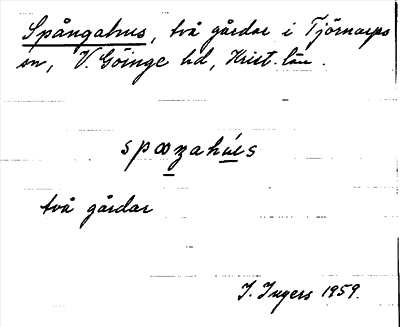 Spångahus, två gårdar i Tjörnarps
sn, V. Göinge hd, Krist. län.
två gårdar
I. Ingers 1959.